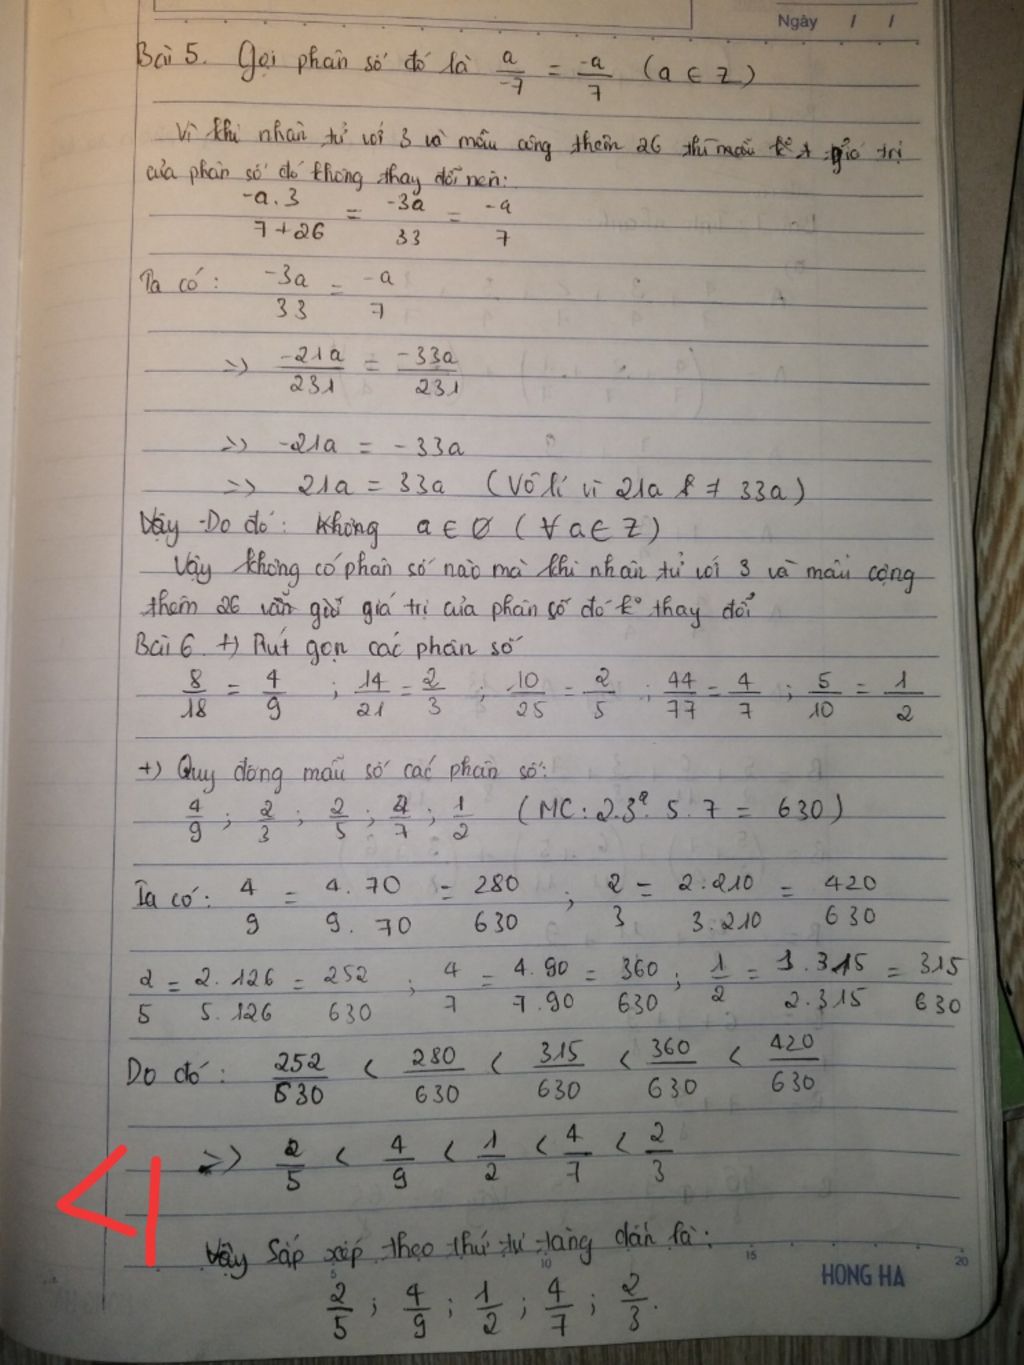 Ngày / /
Bài 5. Gọi phân số đó là a/-7 = -a/7 (a ∈ Z)
Vì khi nhân tử với 3 và mẫu cộng thêm 26 thì giá trị
của phân số đó không thay đổi nên:
-a.3/7+26 = -3a/33 = -a/7
Ta có: -3a/33 = -a/7
=>> -21a/231 = -33a/231
=>> -21a = -33a
=>> 21a = 33a (Vô lí vì 21a ≠ 33a)
Vậy Do đó: Không a ∈ ∅ (∀ a ∈ Z)
Vậy không có phân số nào mà khi nhân tử với 3 và mẫu cộng
thêm 26 vẫn giữ giá trị của phân số đó k° thay đổi
Bài 6 +) Rút gọn các phân số
8/18 = 4/9 ; 14/21 = 2/3 ; 10/25 = 2/5 ; 44/77 = 4/7 ; 5/10 = 1/2
+) Quy đồng mẫu số các phân số:
4/9 ; 2/3 ; 2/5 ; 4/7 ; 1/2 (MC: 2.3². 5. 7 = 630)
Ta có: 4/9 = 4. 70/9. 70 = 280/630 ; 2/3 = 2.210/3.210 = 420/630
2/5 = 2. 126/5. 126 = 252/630 ; 4/7 = 4. 90/7. 90 = 360/630 ; 1/2 = 1. 315/2. 315 = 315/630
Do đó: 252/630 < 280/630 < 315/630 < 360/630 < 420/630
=>> 2/5 < 4/9 < 1/2 < 4/7 < 2/3
<1
Vậy Sắp xếp theo thứ tự tăng dần là:
5 10 15 20
HONG HA
2/5 ; 4/9 ; 1/2 ; 4/7 ; 2/3.